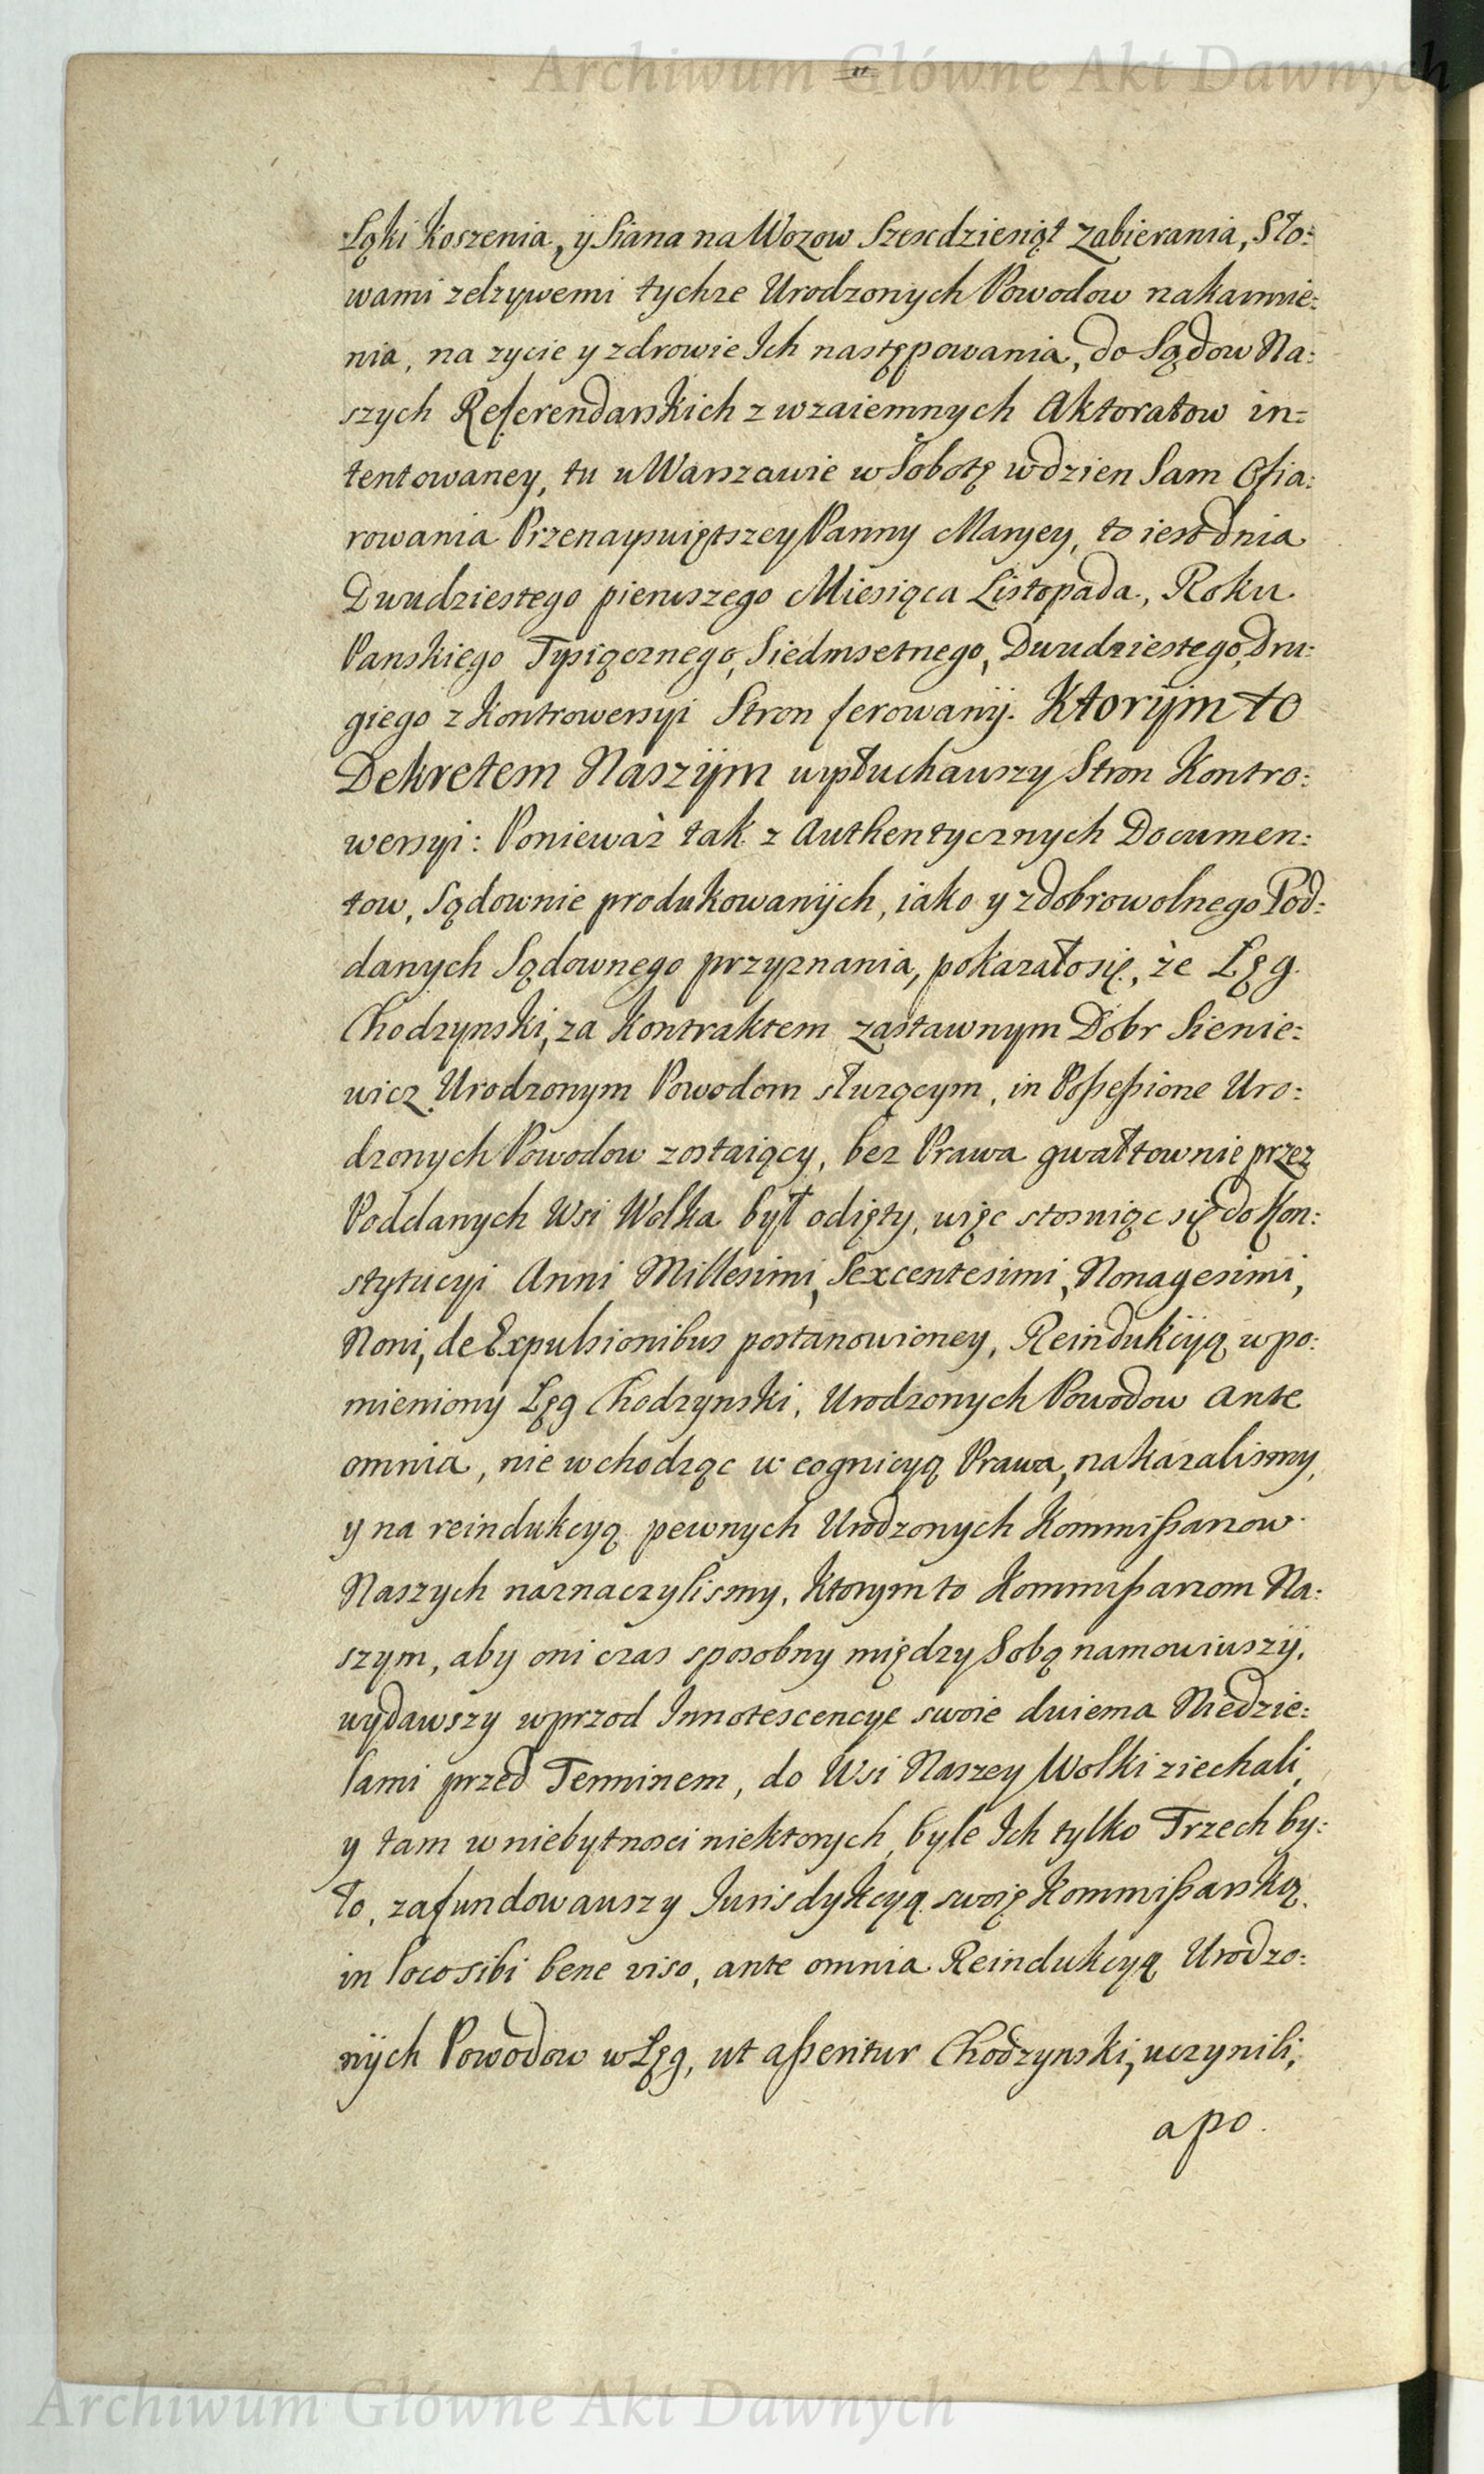 Archiwum Główne Akt Dawnych
Łąki Koszenia, y Siana na Wozow Szescdziesiąt zabierania, Sło:
wami zelzywemi tychze Urodzonych Powodow nakarmie:
nia, na zycie y zdrowie Ich następowania, do Sądow Na:
szych Referendarskich z wzaiemnych Aktoratow in=
tentowaney, tu w Warszawie w Sobotę w dzien Sam Ofia:
rowania Przenayswiętszey Panny Maryey, to iest dnia
Dwudziestego pierwszego Miesiąca Listopada, Roku
Panskiego Tysiącznego, Siedmsetnego, Dwudziestego, Dru:
giego z Kontrowersyi Stron ferowanÿ. Ktorÿm to
Dekretem Naszÿm wysłuchawszy Stron Kontro:
wersyi: Ponieważ tak z Authentycznych Documen:
tow, Sądownie produkowanÿch, iako y z dobrowolnego Pod:
danych Sądownego przyznania, pokazało się, że Łęg
Chodzynski, za Kontraktem zastawnym Dobr Sienie:
wicz Urodzonym Powodom słuzącym, in Possessione Uro:
dzonych Powodow zostaiący, bez Prawa gwałtownie przez
Poddanych Wsi Wolka był odięty, więc stosuiąc się do Kon:
stytucyi Anni Millesimi, Sexcentesimi, Nonagesimi,
Noni, de Expulsionibus postanowioney, Reindukcÿą w po:
mieniony Łęg Chodzynski, Urodzonych Powodow ante
omnia, nie wchodząc w cognicyą Prawa, nakazalismy,
y na reindukcyą pewnych Urodzonych Kommissarzow
Naszych naznaczylismy, Ktorym to Kommissarzom Na:
szym, aby oni czas sposobny między Sobą namowiwszÿ,
wydawszy wprzod Innotescencye swoie dwiema Niedzie:
lami przed Terminem, do Wsi Naszey Wolki ziechali,
y tam w niebytnosci niektorych, byle Ich tylko Trzech by:
ło, zafundowawszy Jurisdykcyą swoię Kommissarską,
in loco sibi bene viso, ante omnia Reindukcyą Urodzo:
nÿch Powodow w Łęg, ut asseritur Chodzynski, uczynili;
a po
Archiwum Główne Akt Dawnych